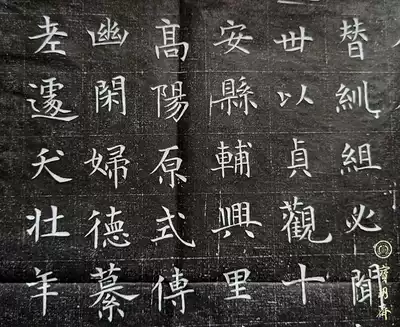 替紃組必聞
世以貞觀十
安縣輔興里
高陽原式傳
幽閑婦德纂
老遽夭壯年